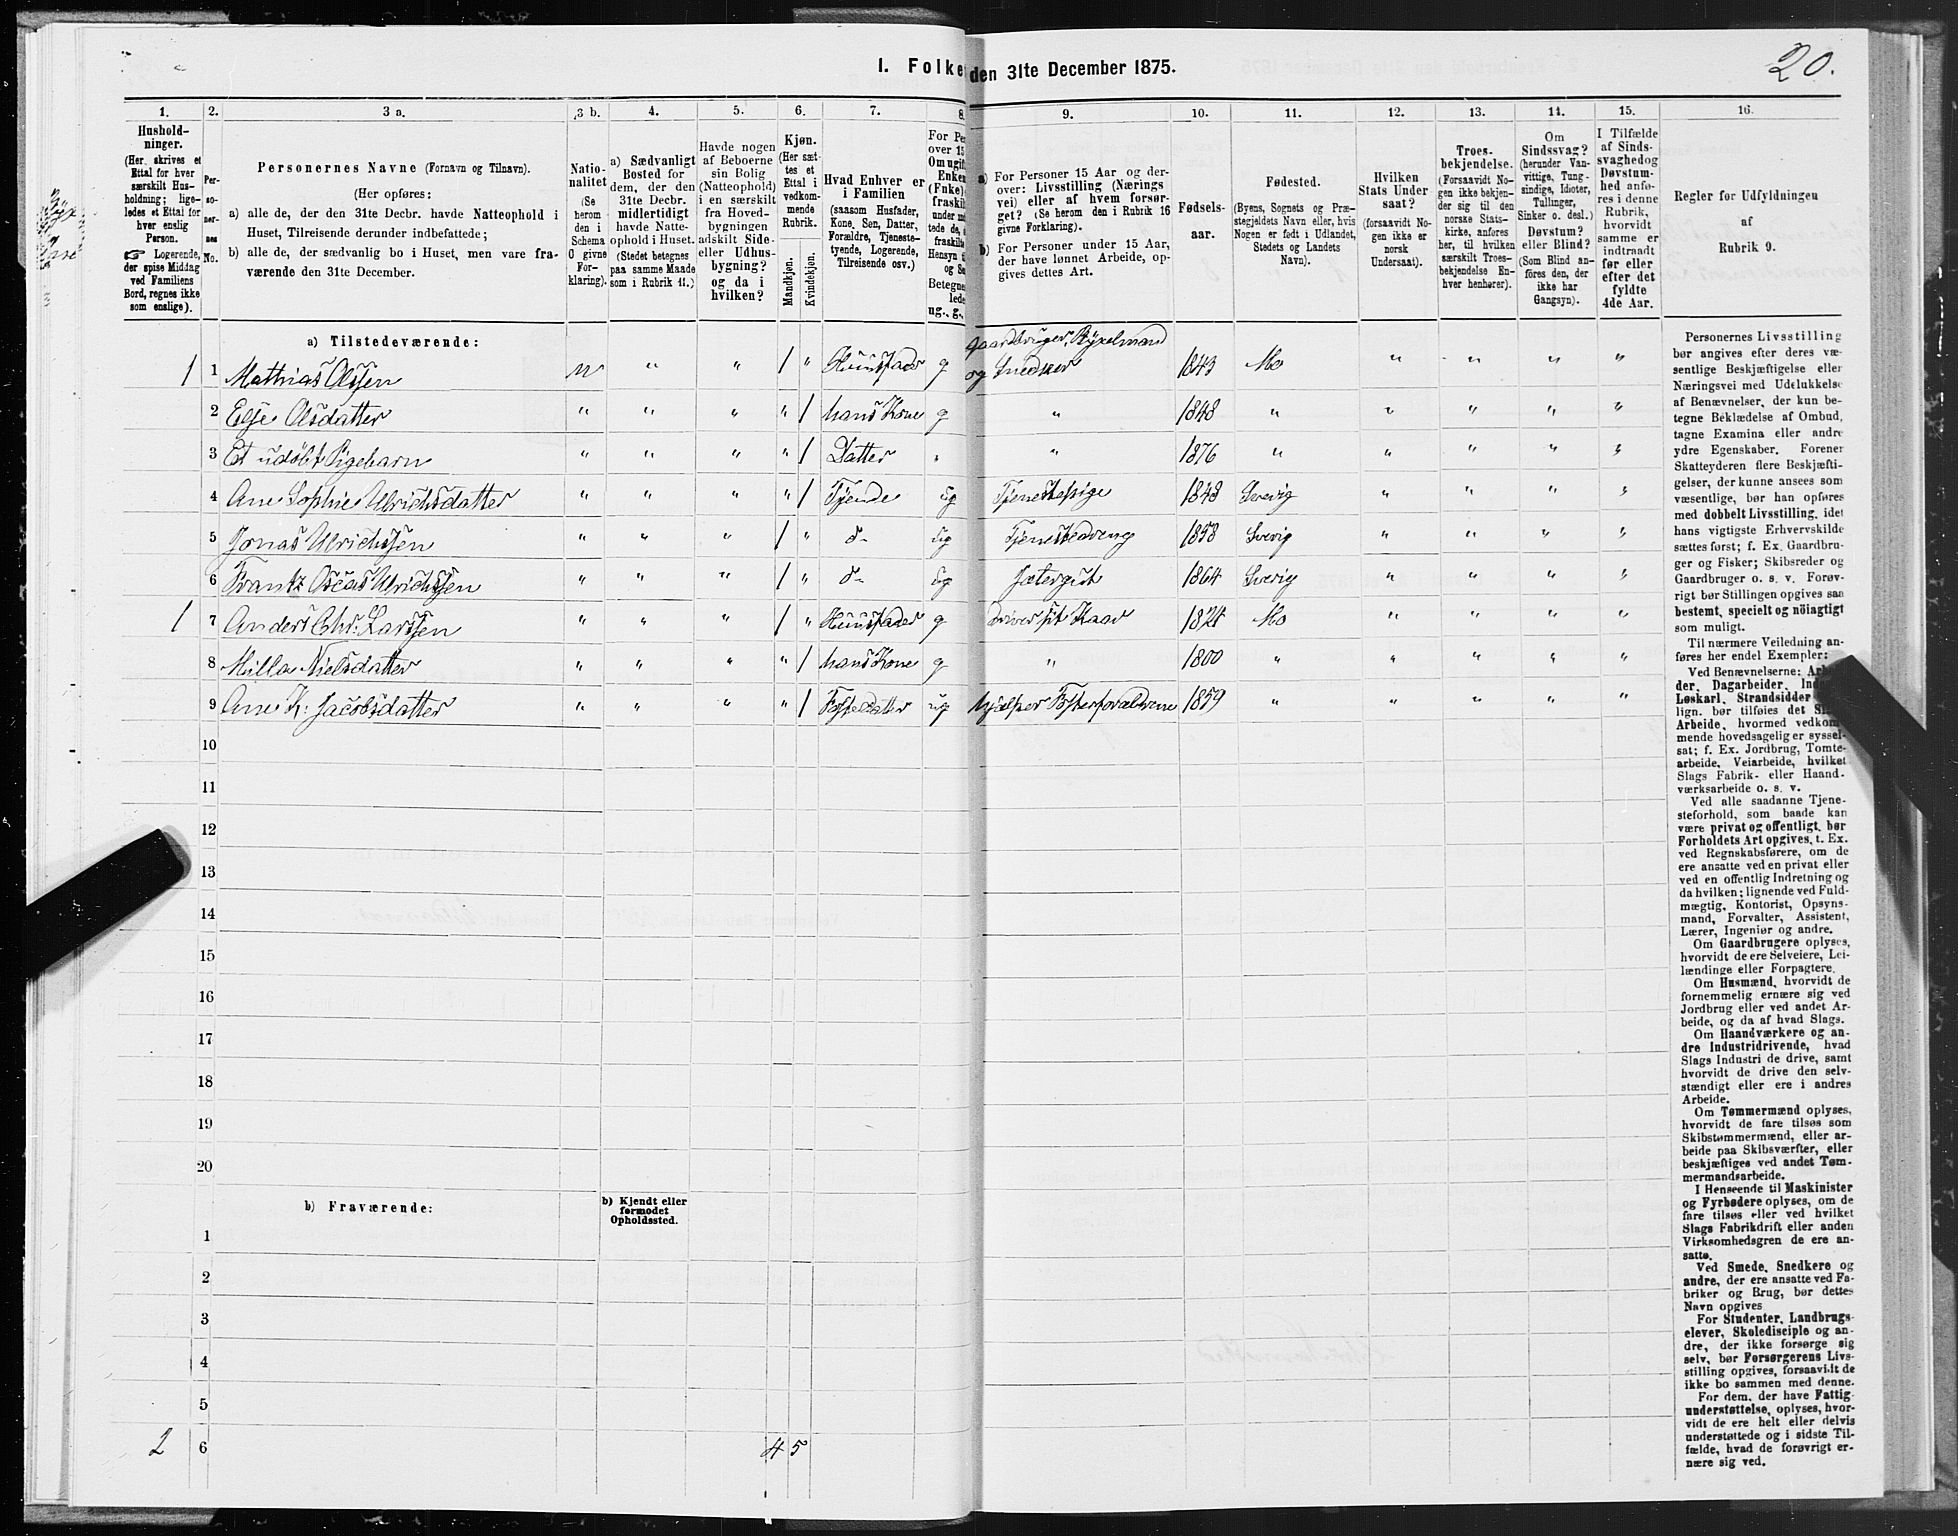 20.
I. Folke den 31te December 1875.
1. 2. 3 a. 3 b. 4. 5. 6. 7. 8. 9. 10. 11. 12. 13. 14. 15. 16.
Hushold-
ninger.
(Her skrives et
Ettal for hver
særskilt Hus-
holdning; lige-
ledes et Ettal for
hver enslig
Person.
☞ Logerende,
der spise Middag
ved Familiens
Bord, regnes ikke
som enslige).
Per-
so-
ner-
nes
No.
Personernes Navne (Fornavn og Tilnavn).
(Her opføres:
a) alle de, der den 31te Decbr. havde Natteophold i
Huset, Tilreisende derunder indbefattede;
b) alle de, der sædvanlig bo i Huset, men vare fra-
værende den 31te December.
Natio-
nalitet
(Se
herom
den i
Schema
O givne
For-
klaring).
a) Sædvanligt
Bosted for
dem, der den
31te Decbr.
midlertidigt
havde Natte-
ophold i Huset.
(Stedet betegnes
paa samme Maade
som i Rubrik 11.)
Havde nogen
af Beboerne
sin Bolig
(Natteophold)
i en særskilt
fra Hoved-
bygningen
adskilt Side-
eller Udhus-
bygning?
og da i
hvilken?
Kjøn.
(Her sæt-
tes et
Ettal i
vedkom-
mende
Rubrik.
Mandkjøn.
Kvindekjøn.
Hvad Enhver er
i Familien
(saasom Husfader,
Kone, Søn, Datter,
Forældre, Tjeneste-
tyende, Logerende,
Tilreisende osv.)
For Pe
over 15
Om ugift
Enken
(Fnke)
fraskil
under me
tede de,
fraskilt
Hensyn t
og Se
Betegne
lede
ug., g.,
a) For Personer 15 Aar og der-
over: Livsstilling (Nærings
vei) eller af hvem forsør-
get? (Se herom den i Rubrik 16
givne Forklaring).
b) For Personer under 15 Aar,
der have lønnet Arbeide, op-
gives dettes Art.
Fødsels-
aar.
Fødested.
(Byens, Sognets og Præ-
stegjeldets Navn eller, hvis
Nogen er født i Udlandet,
Stedets og Landets
Navn).
Hvilken
Stats Under
saat?
(forsaavidt No-
gen ikke er
norsk
Undersaat).
Troes-
bekjendelse.
(Forsaavidt No-
gen ikke bekjen-
der sig til den
norske Stats-
kirke, anføres
her, til hvilken
særskilt Troes-
bekjendelse En-
hver henhører).
Om
Sindssvag?
(herunder Van-
vittige, Tung-
sindige, Idioter,
Tullinger,
Sinker o. desl.)
Døvstum?
eller Blind?
(Som Blind an-
føres den, der
ikke har
Gangsyn).
I Tilfælde
af Sinds-
svaghedog
Døvstum-
hed anfø-
res i denne
Rubrik,
hvorvidt
samme er
indtraadt
før eller
efter det
fyldte
4de Aar.
Regler for Udfyldningen
af
Rubrik 9.
a) Tilstedeværende:
1 1 Mathias Olssen n " " 1 " Huusfader g Gaardbruger, Leielænd og Snedker 1843 Mo " " " "
2 Else Olsdatter " " " " 1 hans Kone g " 1848 " " " " "
3 Et udøbt Pigebarn " " " " 1 Datter " " 1876 " " " " "
4 Ane Sophie Ulrichsdatter " " " " 1 Tjende ug Tjenestepige 1848 Sverig " " " "
5 Jonas Ulrichssen " " " 1 " d- ug Tjenestedreng 1858 Sverig " " " "
6 Frantz Oscas Ulrichssen " " " 1 " d- ug Jætergut 1864 Sverig " " " "
1 7 Anders Chr. Larssen " " " 1 " Huusfader g driver sit Kaar 1824 Mo " " " "
8 Milla Nielsdatter " " " " 1 hans Kone g " 1800 " " " " "
9 Ane K. Jacobsdatter " " " " 1 Fosterdatter ug hjælper Fosterforældrene 1859 " " " " "
10
11
12
13
14
15
16
17
18
19
20
b) Fraværende:
b) Kjendt eller
formodet
Opholdssted.
1
2
3
4
5
2 6 4 5
Personernes Livsstilling
bør angives efter deres væ-
sentlige Beskjæftigelse eller
Næringsvei med Udelukkelse
af Benævnelser, der kun be-
tegne Beklædelse af Ombud,
tagne Examina eller andre
ydre Egenskaber. Forener
Skatteyderen flere Beskjæfti-
gelser, der kunne ansees som
væsentlige, bør han opføres
med dobbelt Livsstilling, idet
hans vigtigste Erhvervskilde
sættes først; f. Ex. Gaardbru-
ger og Fisker; Skibsreder og
Gaardbruger o. s. v. Forøv-
rigt bør Stillingen opgives saa
bestemt, specielt og nöiagtigt
som muligt.
Til nærmere Veiledning an-
føres her endel Exempler:
Ved Benævnelserne: Ar
der, Dagarbeider, In
Løskarl, Strandsidder
lign. bør tilføies det Sl
Arbeide, hvormed vedkom-
mende hovedsagelig er syssel-
sat; f. Ex. Jordbrug, Tomte-
arbeide, Veiarbeide, hvilket
Slags Fabrik- eller Haand-
værksarbeide o. s. v.
Ved alle saadanne Tjene-
steforhold, som baade kan
være privat og offentligt, bør
Forholdets Art opgives, t. Ex.
ved Regnskabsførere, om de
ere ansatte ved en privat eller
ved en offentlig Indretning og
da hvilken; lignende ved Fuld-
mægtig, Kontorist, Opsyns-
mand, Forvalter, Assistent,
Lærer, Ingeniør og andre.
Om Gaardbrugere oplyses,
hvorvidt de ere Selveiere, Lei-
lændinge eller Forpagtere.
Om Husmænd, hvorvidt de
fornemmelig ernære sig ved
Jordbrug eller ved andet Ar-
beide, og da af hvad Slags.
Om Haandværkere og an-
dre Industridrivende, hvad
Slags Industri de drive, samt
hvorvidt de drive den selv-
stændigt eller ere i andres
Arbeide.
Om Tømmermænd oplyses,
hvorvidt de fare tilsøs som
Skibstømmermænd, eller ar-
beide paa Skibsværfter, eller
beskjæftiges ved andet Tøm-
mermandsarbeide.
I Henseende til Maskinister
og Fyrbødere oplyses, om de
fare tilsøs eller ved hvilket
Slags Fabrikdrift eller anden
Virksomhedsgren de ere an-
satte.
Ved Smede, Snedkere og
andre, der ere ansatte ved Fa-
briker og Brug, bør dettes
Navn opgives
For Studenter, Landbrugs-
elever, Skoledisciple og an-
dre, der ikke forsørge sig
selv, bør Forsørgerens Livs-
stilling opgives, forsaavidt de
ikke bo sammen med denne.
For dem, der have Fattig
understøttelse, oplyses, hvor-
vidt de ere helt eller delvis
understøttede og i sidste Til-
fælde, hvad de forøvrigt er-
nære sig ved.